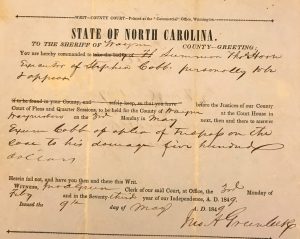 WRIT—COUNTY COURT—Printed at the "Commercial" Office, Wilmington.
STATE OF NORTH CAROLINA.
TO THE SHERIFF OF Wayne COUNTY—GREETING:
You are hereby commanded to take the body of Summon Thos
Executor of Stephen Cobb personally to be
& appear
if to be found in your County, and safely keep, so that you have before the Justices of our County
Court of Pleas and Quarter Sessions, to be held for the County of Wayne at the Court House in
Waynesboro on the 3rd Monday in May next, then and there to answer
Cobb of a plea of Trespass on the
case to his damage five hundred
dollars
Herein fail not, and have you then and there this Writ.
WITNESS, Clerk of our said Court, at Office, the 3rd Monday of
Feby and in the Seventy third year of our Independence, A. D. 1849.
Issued the 9th day of May A. D. 1849